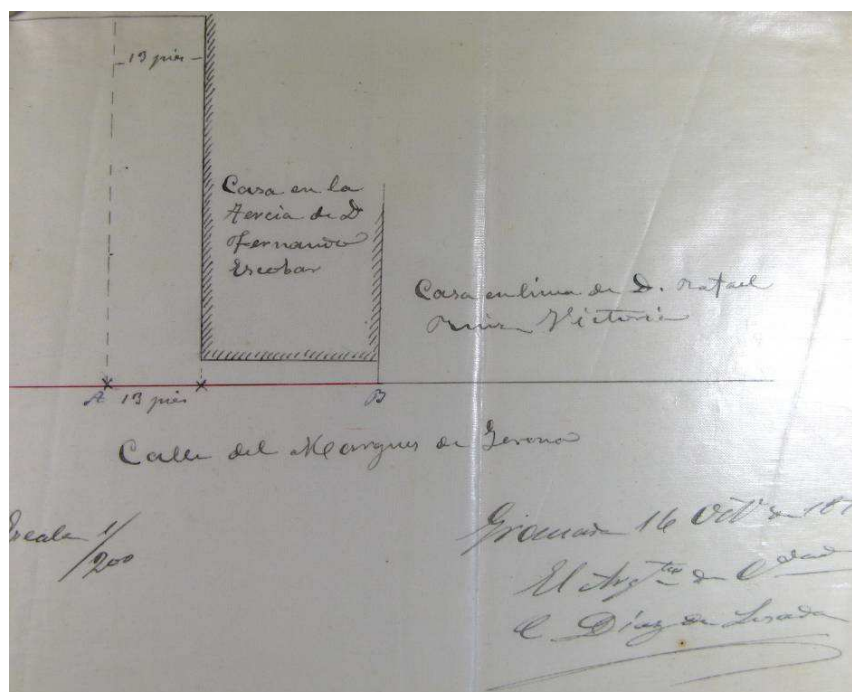 13 pies
Casa en la
Tercia de Dn
Fernando
Escobar
Casa en linea de D. Rafael
Ruiz Victoria
A 13 pies B
Calle del Marques de Gerona
Escala 1/200
Granada 16 Oct de 18
El Arqto de Cdad
C Diaz de Losada